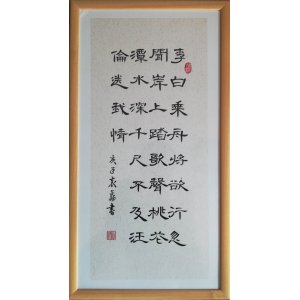 李白乘舟將欲行忽
聞岸上踏歌聲桃花
潭水深千尺不及汪
倫送我情
庚子袁書